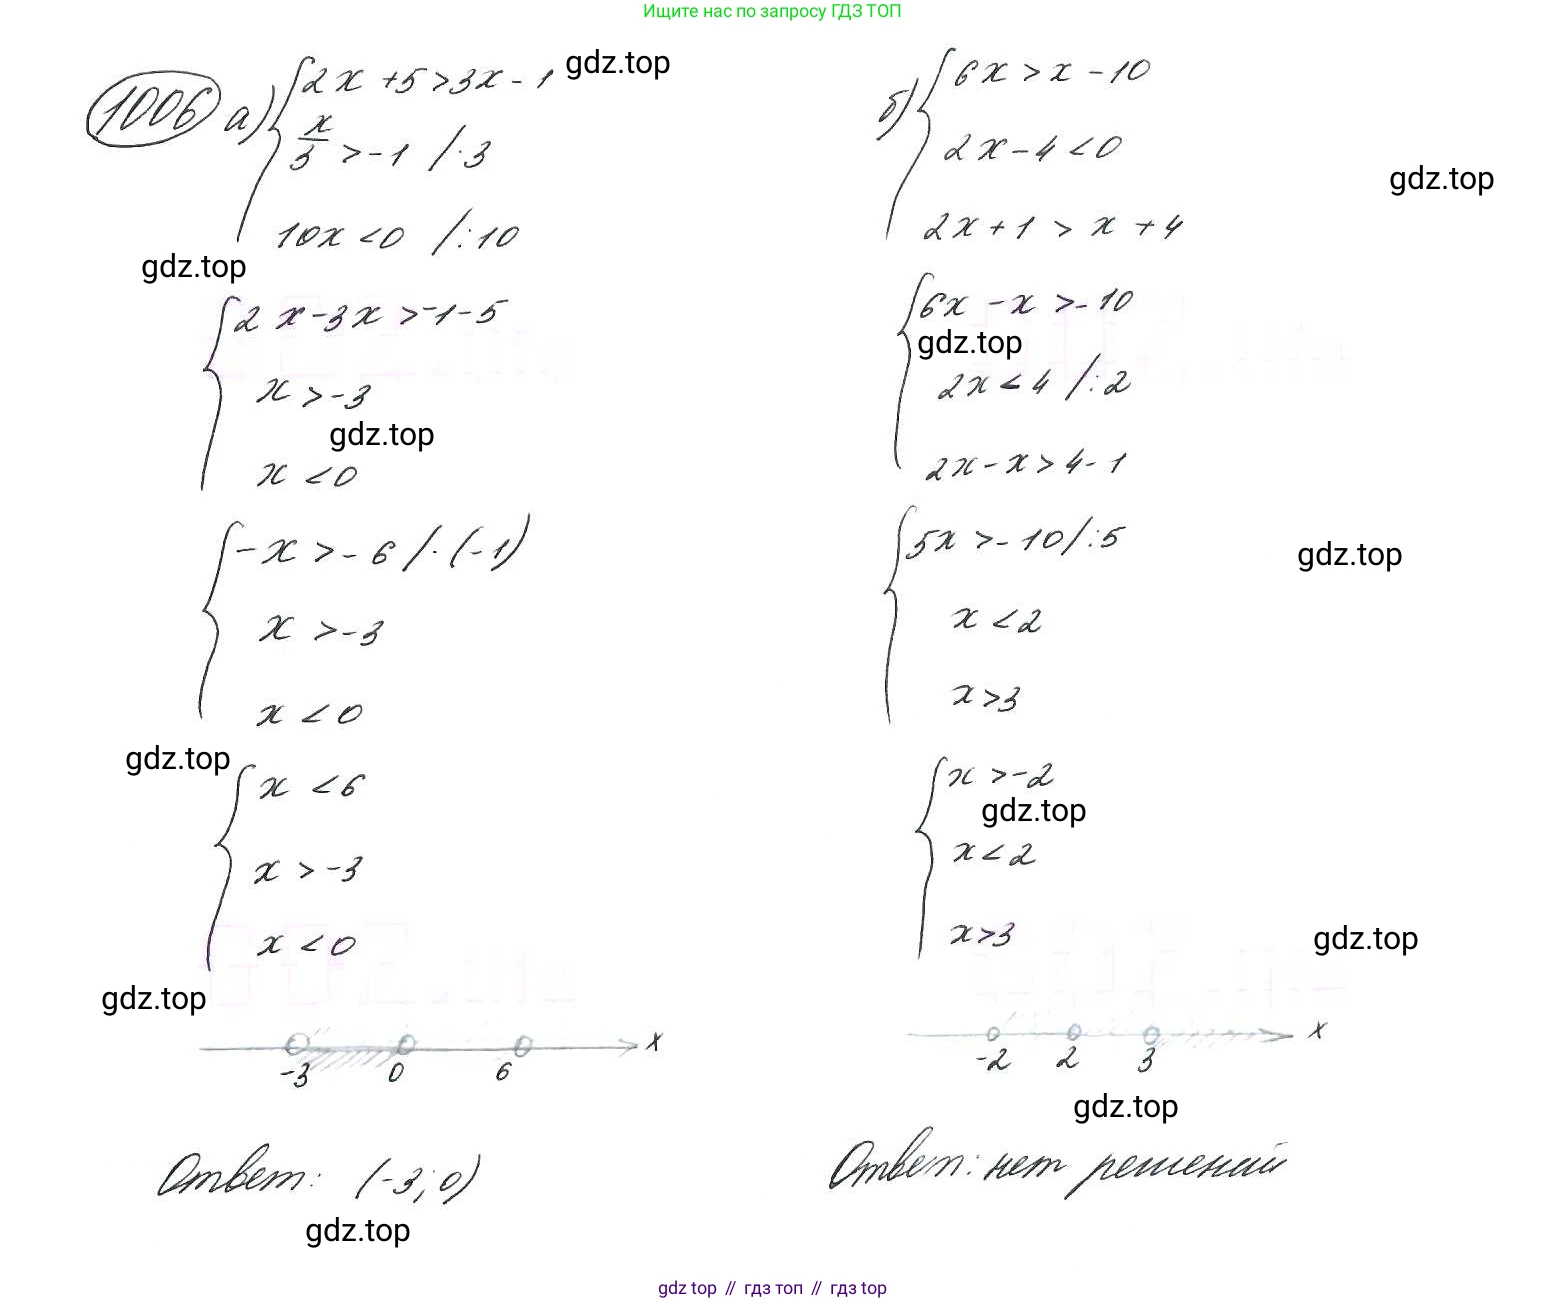 Ищите нас по запросу ГДЗ ТОП
1006 а) 2x + 5 > 3x - 1 gdz.top
x/3 > -1 / · 3
10x < 0 / : 10
gdz.top
2x - 3x > -1 - 5
x > -3
gdz.top
x < 0
-x > -6 / · (-1)
x > -3
x < 0
gdz.top
x < 6
x > -3
x < 0
gdz.top
-3 0 6 x
Ответ: (-3; 0)
gdz.top
б) 6x > x - 10
2x - 4 < 0
gdz.top
2x + 1 > x + 4
6x - x > -10
gdz.top
2x < 4 / : 2
2x - x > 4 - 1
5x > -10 / : 5
gdz.top
x < 2
x > 3
x > -2
gdz.top
x < 2
x > 3
gdz.top
-2 2 3 x
gdz.top
Ответ: нет решений
gdz top // гдз топ // гдз top